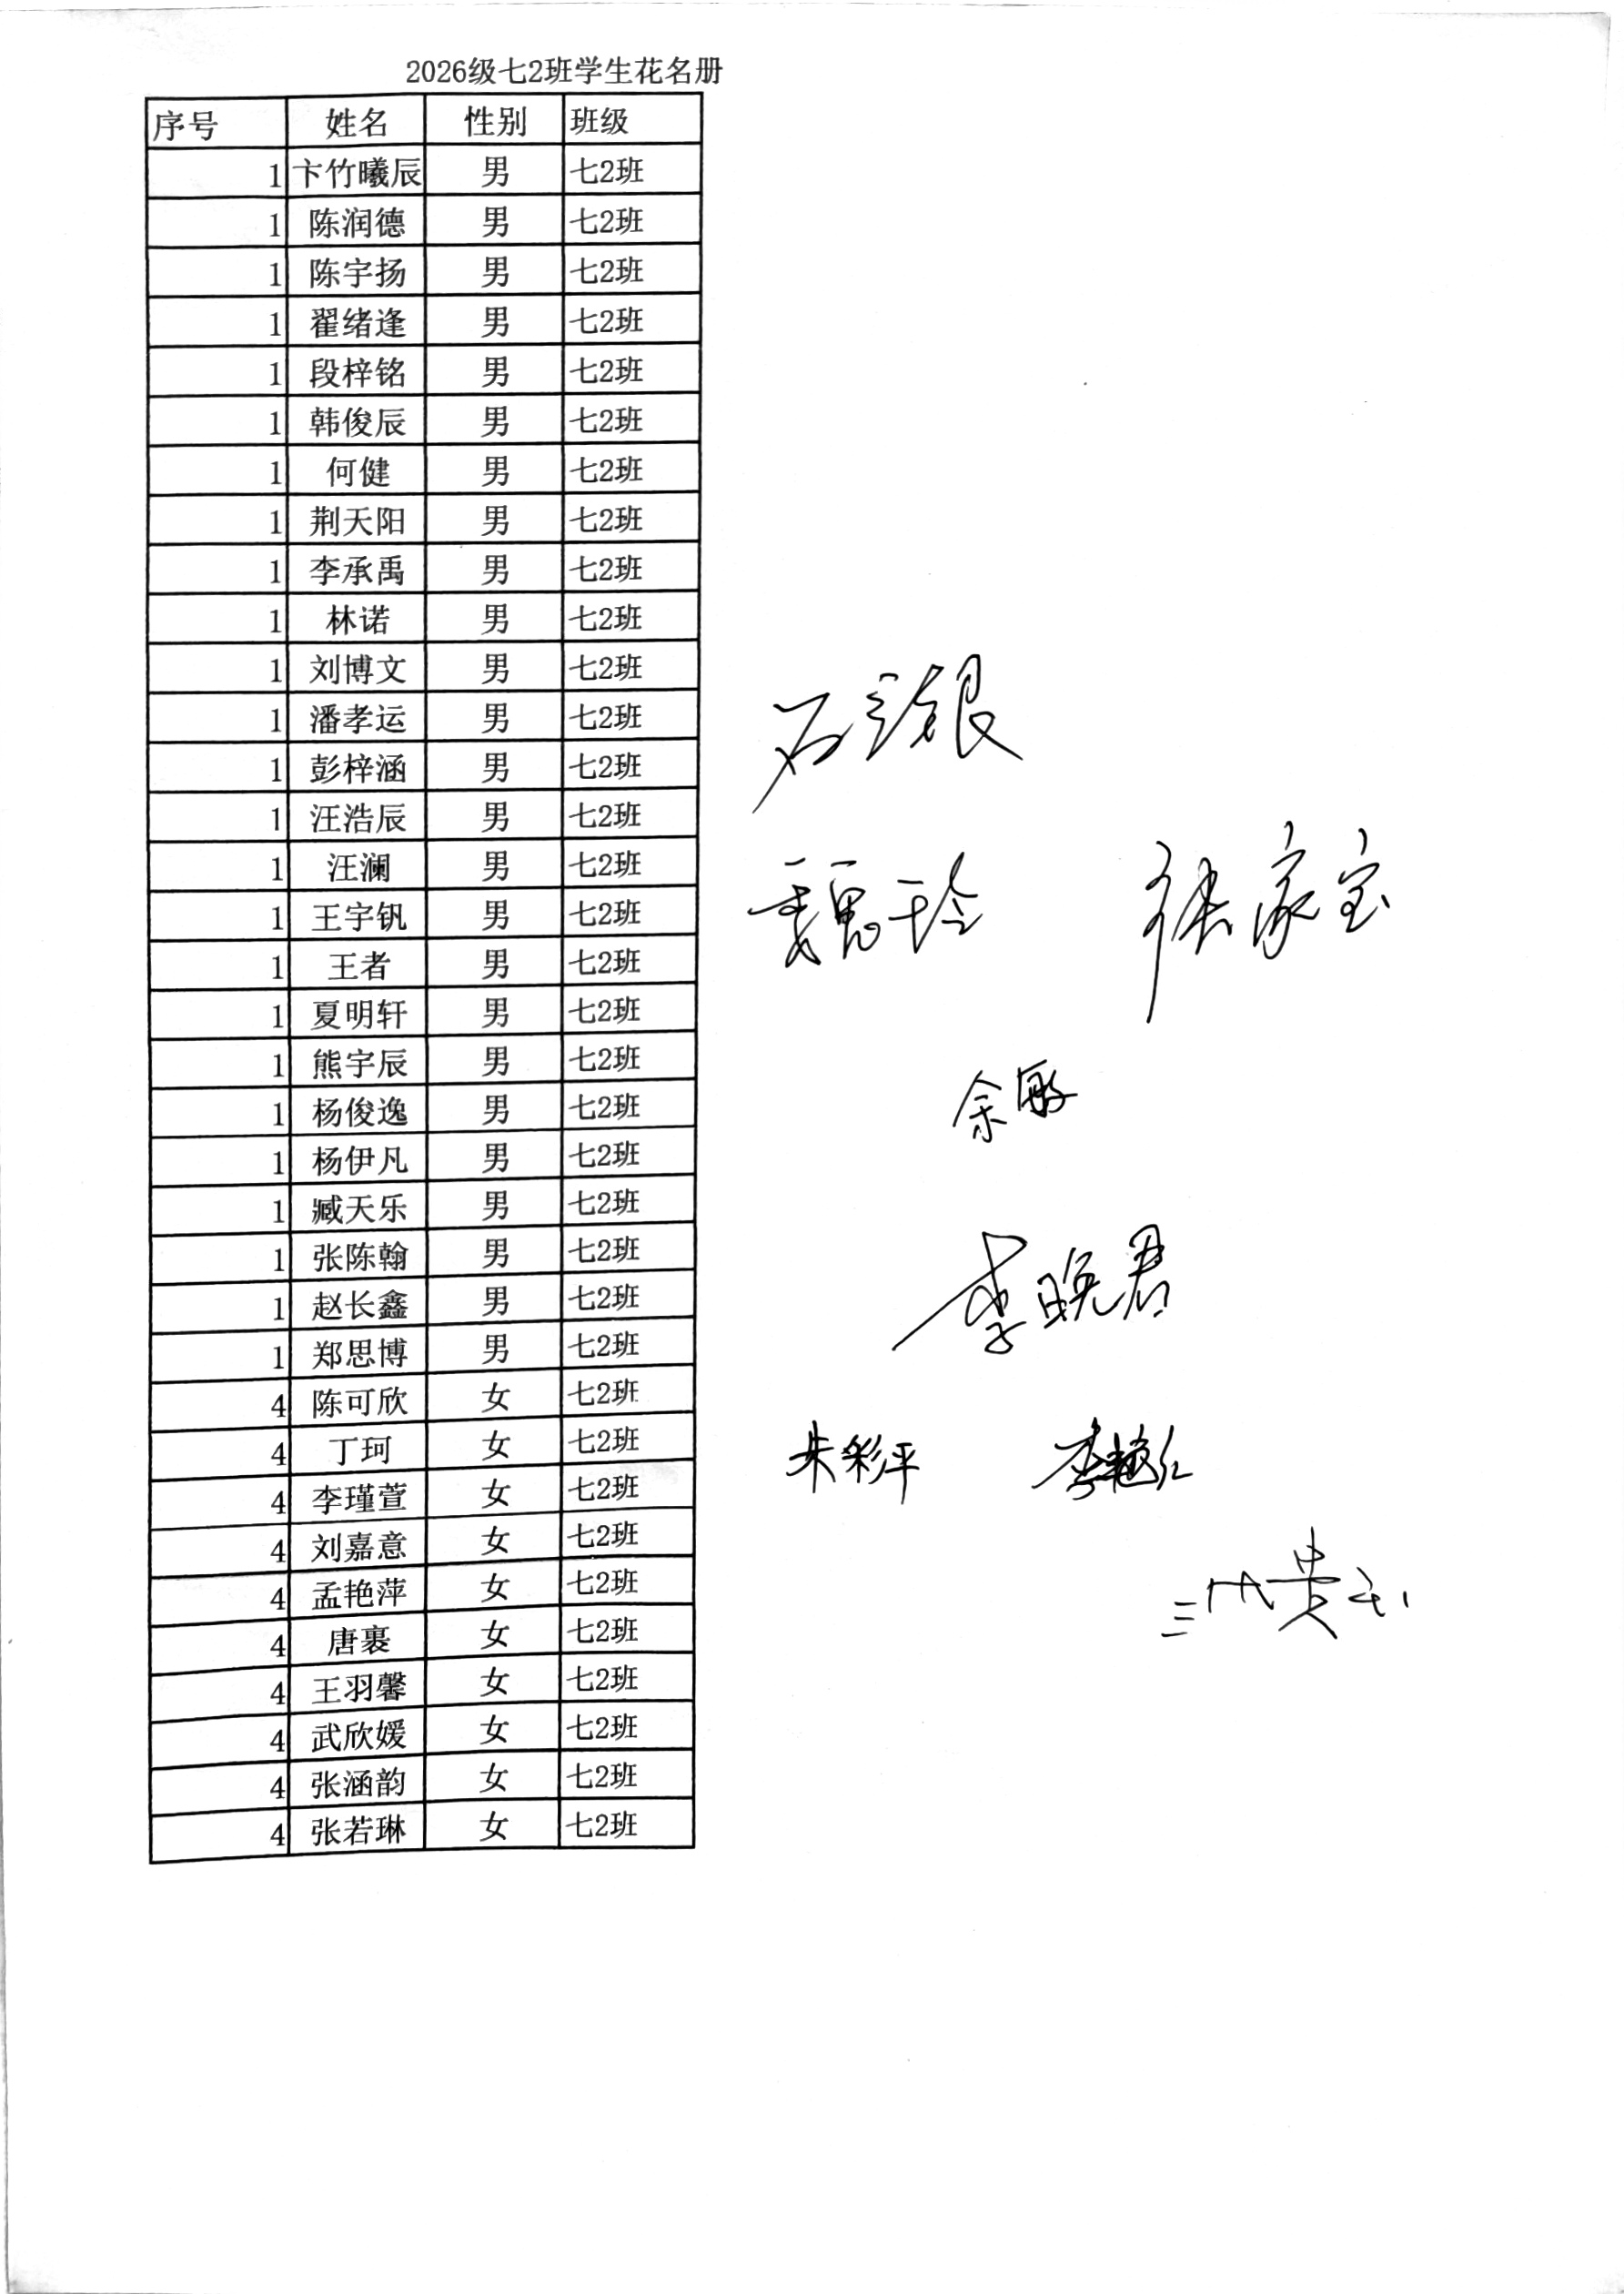 2026级七2班学生花名册
序号 姓名 性别 班级
1 卞竹曦辰 男 七2班
1 陈润德 男 七2班
1 陈宇扬 男 七2班
1 翟绪逢 男 七2班
1 段梓铭 男 七2班
1 韩俊辰 男 七2班
1 何健 男 七2班
1 荆天阳 男 七2班
1 李承禹 男 七2班
1 林诺 男 七2班
1 刘博文 男 七2班
1 潘孝运 男 七2班
1 彭梓涵 男 七2班
1 汪浩辰 男 七2班
1 汪澜 男 七2班
1 王宇钒 男 七2班
1 王者 男 七2班
1 夏明轩 男 七2班
1 熊宇辰 男 七2班
1 杨俊逸 男 七2班
1 杨伊凡 男 七2班
1 臧天乐 男 七2班
1 张陈翰 男 七2班
1 赵长鑫 男 七2班
1 郑思博 男 七2班
4 陈可欣 女 七2班
4 丁珂 女 七2班
4 李瑾萱 女 七2班
4 刘嘉意 女 七2班
4 孟艳萍 女 七2班
4 唐裹 女 七2班
4 王羽馨 女 七2班
4 武欣媛 女 七2班
4 张涵韵 女 七2班
4 张若琳 女 七2班
魏玲
张家宝
余敏
李晚君
朱彩平
李艳红